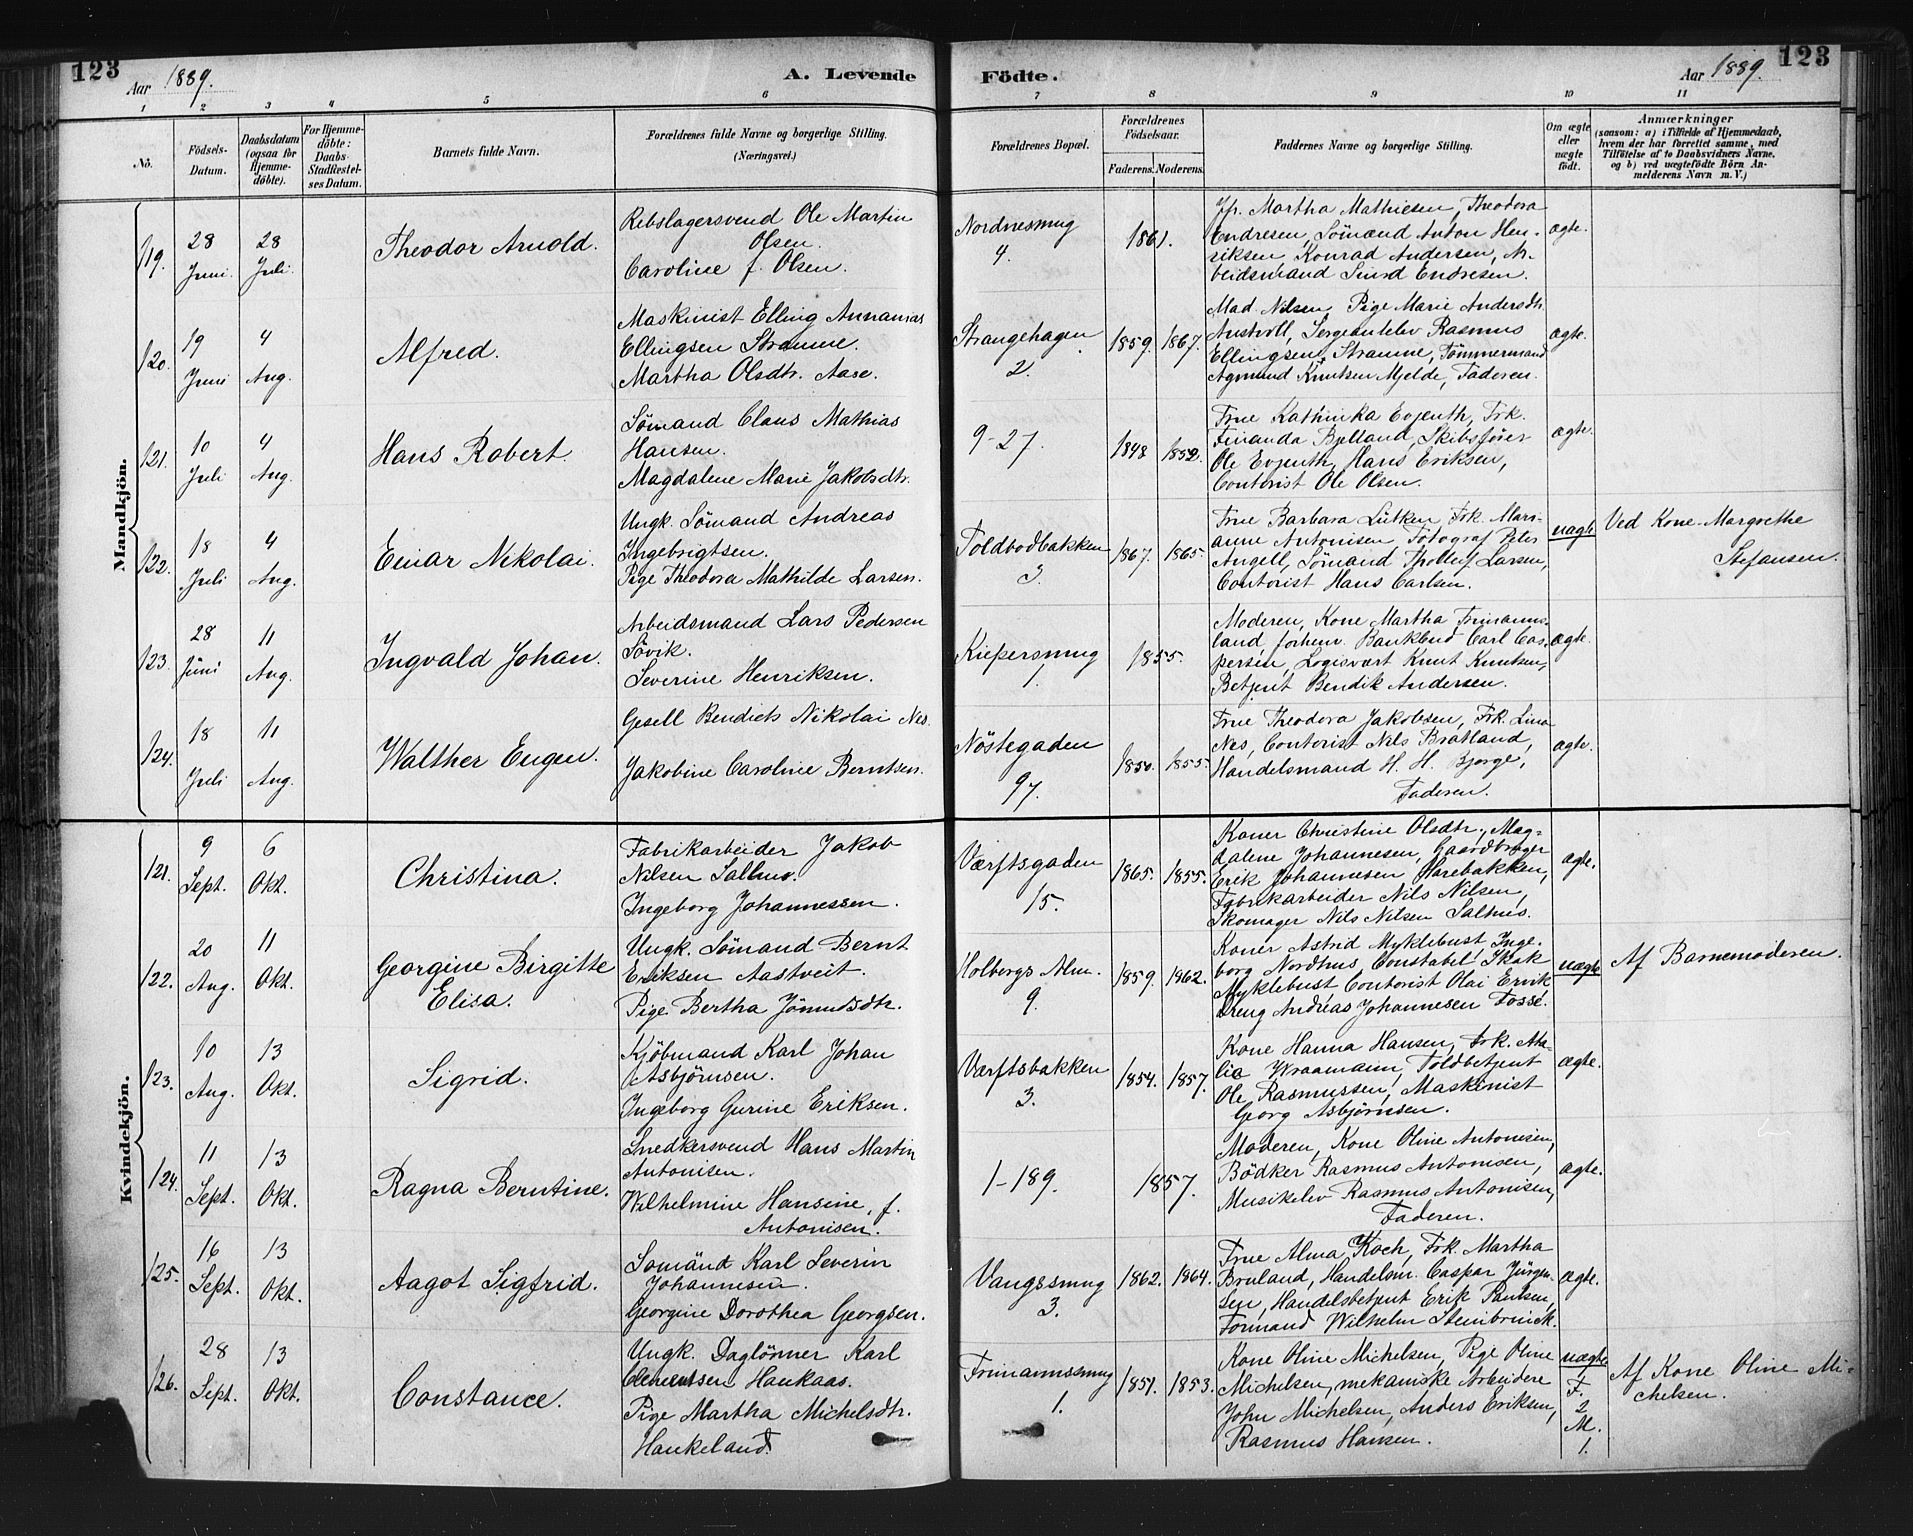 123
Aar 1889.
A. Levende Födte.
Aar 1889.
123
1 2 3 4 5 6 7 8 9 10 11
No.
Födsels-Datum.
Daabsdatum (ogsaa for Hjemme-döbte).
For Hjemme-döbte: Daabs-Stadfæstel-ses Datum.
Barnets fulde Navn.
Forældrenes fulde Navne og borgerlige Stilling. (Næringsvei.)
Forældrenes Bopæl.
Forældrenes Födselsaar.
Faderens. Moderens.
Faddernes Navne og borgerlige Stilling.
Om ægte eller uægte födt.
Anmærkninger
(saasom: a) i Tilfælde af Hjemmedaab, hvem der har forrettet samme, med Tilföielse af to Daabsvidners Navne, og b) ved uægtefödte Börn An-melderens Navn m. V.)
Mandkjön.
119. 28 Juni. 28 Juli.
Theodor Arnold.
Rebslagersvend Ole Martin
Olsen.
Caroline f. Olsen.
Nordnesmug
4.
1861.
Jfr. Martha Mathiesen, Theodora
Endresen, Sömænd Anton Hen-
riksen, Konrad Andersen, Ar-
beidsmand Sivrd Endresen.
ægte.
120. 19 Juni 4 Aug.
Alfred.
Maskinist Elling Annanias
Ellingsen Stramme.
Martha Olsdtr. Aase.
Strangehagen
2.
1859. 1867.
Mad. Nilsen, Pige Marie Andersdtr.
Austvoll, Sergeantelev Rasmus
Ellingsen Stramme, Tömmermand
Agmund Knutsen Mjelde, Faderen.
ægte.
121. 10 Juli 4 Aug.
Hans Robert
Sömand Claus Mathias
Hansen.
Magdalene Marie Jakobsdtr.
9-27.
1848 1852.
Frue Kathinka Evjenth, Frk.
Finanda Bjelland, Skibsförer
Ole Evjenth, Hans Eriksen,
Contorist Ole Olsen.
ægte.
122. 18 Juli 4 Aug.
Einar Nikolai.
Ungk. Sömand Andreas
Ingebrigtsen.
Pige Theodora Mathilde Larsen.
Toldbodbakken
3.
1867. 1865.
Frue Barbara Lütken, Frk. Mari-
anne Antonisen, Fotograf Peter
Angell, Sömand Tholleif Larsen,
Contorist Hans Carlsen.
uægte
Ved Kone Margrethe
Stefansen.
123. 28 Juni 11 Aug.
Ingvald Johan.
Arbeidsmand Lars Pedersen
Sövik.
Severine Henriksen.
Kiepersmug
1.
1855.
Moderen, Kone Martha Frimanns-
land, forhenv. Bankbud Carl Cas-
persen, Logisvært Knut Knutsen,
Betjent Bendik Andersen.
ægte.
124. 18 Juli 11 Aug.
Walther Eugen.
Gesell Bendiets Nikolai Nes.
Jakobine Caroline Berntsen.
Nöstegaden
97.
1850. 1855.
Frue Theodora Jakobsen, Frk. Lina
Nes, Contorist Nils Bratland,
Handelsmand H. H. Bjorge,
Faderen.
ægte.
Kvindekjön.
121. 9 Sept. 6 Okt.
Christina.
Fabrikarbeider Jakob
Nilsen Salhus.
Ingeborg Johannessen.
Værftsgaden
15.
1865. 1855.
Koner Christine Olsdtr., Mag-
dalene Johannesen, Gaardbruger
Erik Johannesen Harebakken,
Fabrikarbeider Nils Nilsen,
Skomager Nils Nilsen Salhus.
ægte.
122. 20 Aug. 11 Okt.
Georgine Birgitte
Elisa.
Ungk. Sömand Bernt
Eriksen Aastveit.
Pige Bertha Jönundsdtr.
Holbergs Alm.
9.
1859. 1862.
Koner Astrid Myklebust, Inge-
borg Nordhus, Constabel Skak
Myklebust, Contorist Olai Ervik
Dreng Andreas Johannesen Fosse.
uægte
Af Barnemoderen.
123. 10 Aug. 13 Okt.
Sigrid.
Kjöbmand Karl Johan
Asbjörnsen.
Ingeborg Gurine Eriksen.
Værftsbakken
3.
1854. 1857.
Kone Hanna Hansen, Frk. Ama-
lie Wraamann, Toldbetjent
Ole Rasmussen, Maskinist
Georg Asbjörnsen.
ægte.
124. 11 Sept. 13 Okt.
Ragna Berntine.
Snedkersvend Hans Martin
Antonisen.
Wilhelmine Hansine, f.
Antonisen.
1-189.
1857.
Moderen, Kone Oline Antonisen,
Bödker Rasmus Antonisen,
Musikelev Rasmus Antonisen,
Faderen.
ægte.
125. 16 Sept. 13 Okt.
Aagot Sigfrid.
Sömand Karl Severin
Johannesen.
Georgine Dorothea Georgsen.
Vangssmug
3.
1862. 1864.
Frue Alma Koch, Frk. Martha
Bruland, Handelsm. Caspar Jürgen-
sen, Handelsbetjent Erik Paulsen,
Formand Wilhelm Steinbrinck.
ægte.
126. 28 Sept. 13 Okt.
Constance.
Ungk. Daglönner Karl
Clementsen Haukaas.
Pige Martha Michelsdtr.
Haukeland.
Frimannssmug
1.
1851. 1853.
Kone Oline Michelsen, Pige Oline
Michelsen, mekaniske Arbeidere
John Michelsen, Anders Eriksen,
Rasmus Hansen.
uægte
F.
2
M.
1.
Af Kone Oline Mi-
chelsen.